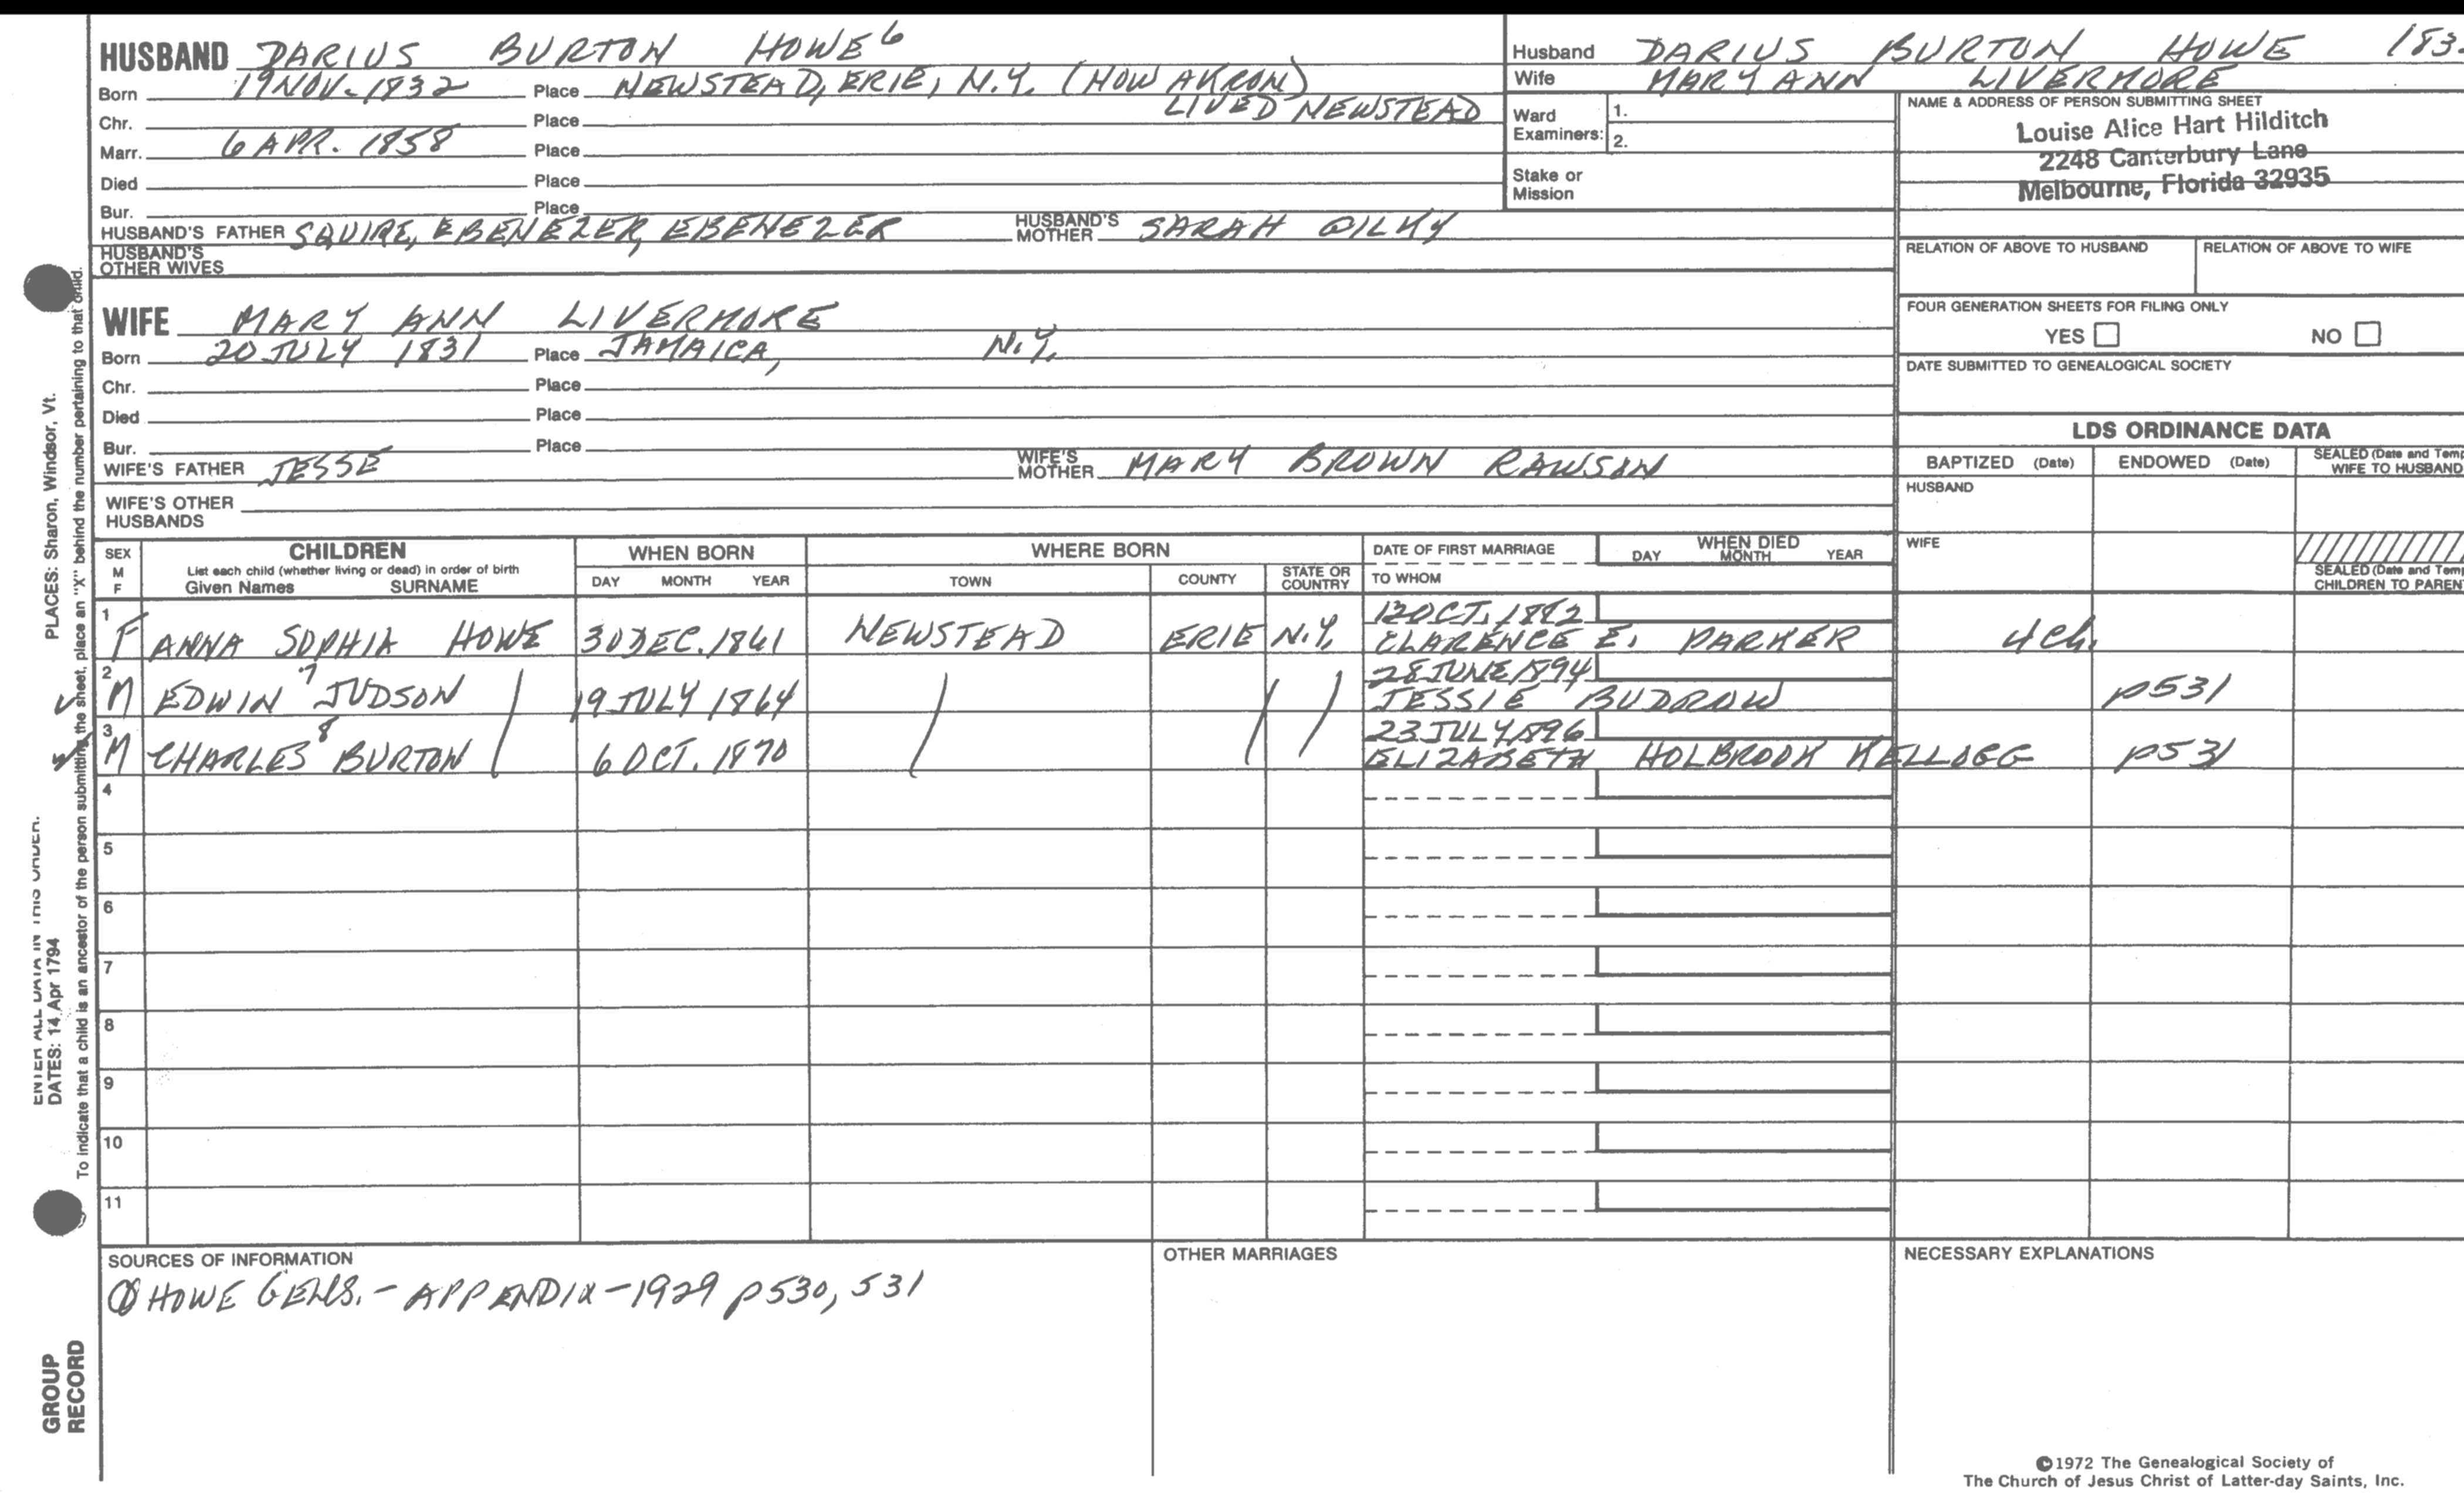 HUSBAND DARIUS BURTON HOWE 6
Born 19 NOV. 1832 Place NEWSTEAD, ERIE, N.Y. (NOW AKRON)
LIVED NEWSTEAD
Chr. Place
Marr. 6 APR. 1858 Place
Died Place
Bur. Place
HUSBAND'S FATHER SQUIRE, EBENEZER, EBENEZER HUSBAND'S MOTHER SARAH GILKY
HUSBAND'S
OTHER WIVES
WIFE MARY ANN LIVERMORE
Born 20 JULY 1831 Place JAMAICA, N.Y.
Chr. Place
Died Place
Bur. Place
WIFE'S FATHER JESSE WIFE'S MOTHER MARY BROWN RAWSON
WIFE'S OTHER
HUSBANDS
Husband DARIUS BURTON HOWE 183
Wife MARY ANN LIVERMORE
Ward
Examiners:
1.
2.
Stake or
Mission
NAME & ADDRESS OF PERSON SUBMITTING SHEET
Louise Alice Hart Hilditch
2248 Canterbury Lane
Melbourne, Florida 32935
RELATION OF ABOVE TO HUSBAND RELATION OF ABOVE TO WIFE
FOUR GENERATION SHEETS FOR FILING ONLY
YES NO
DATE SUBMITTED TO GENEALOGICAL SOCIETY
LDS ORDINANCE DATA
BAPTIZED (Date) ENDOWED (Date) SEALED (Date and Temp
WIFE TO HUSBAND
HUSBAND
WIFE
SEALED (Date and Temp
CHILDREN TO PAREN
SEX
M
F
CHILDREN
List each child (whether living or dead) in order of birth
Given Names SURNAME
WHEN BORN
DAY MONTH YEAR
WHERE BORN
TOWN COUNTY STATE OR COUNTRY
DATE OF FIRST MARRIAGE
TO WHOM
WHEN DIED
DAY MONTH YEAR
12 OCT. 1882
1 F ANNA SOPHIA HOWE 30 DEC. 1861 NEWSTEAD ERIE N.Y. CLARENCE E. PARKER 4 ch.
28 JUNE 1894
2 M EDWIN 7 JUDSON 19 JULY 1864 JESSIE BUDROW p531
23 JULY 1896
3 M CHARLES 8 BURTON 6 OCT. 1870 ELIZABETH HOLBROOK KELLOGG p531
4
5
6
7
8
9
10
11
SOURCES OF INFORMATION
① HOWE GENLS. - APPENDIX - 1929 p530, 531
OTHER MARRIAGES
NECESSARY EXPLANATIONS
©1972 The Genealogical Society of
The Church of Jesus Christ of Latter-day Saints, Inc.
ENTER ALL DATA IN THIS ORDER.
DATES: 14 Apr 1794
PLACES: Sharon, Windsor, Vt.
To indicate that a child is an ancestor of the person submitting the sheet, place an "X" behind the number pertaining to that child.
GROUP
RECORD